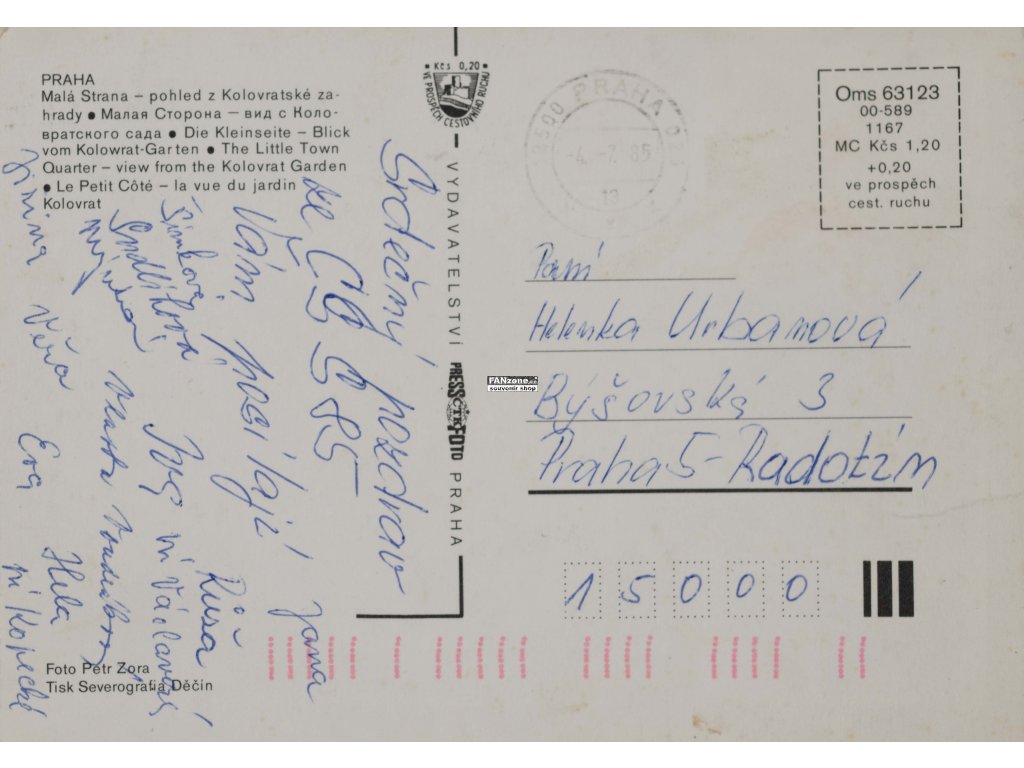 PRAHA
Malá Strana – pohled z Kolovratské za-
hrady ● Малая Сторона – вид с Коло-
вратского сада ● Die Kleinseite – Blick
vom Kolowrat-Garten ● The Little Town
Quarter – view from the Kolovrat Garden
● Le Petit Côté – la vue du jardin
Kolovrat
Srdečný pozdrav
ze ČSS 85
Vám posílají
Jana
Růša
Šimková
Iva
Václavová
Vlasta
Jiřina Věra Eva Hela
Kopecká
Foto Petr Zora
Tisk Severografia Děčín
Kčs 0,20
VE PROSPĚCH CESTOVNÍHO RUCHU
VYDAVATELSTVÍ PRESSFOTO PRAHA
ČTK
FANzone.cz
souvenir shop
PRAHA
-4.-7.85
13
Oms 63123
00-589
1167
MC Kčs 1,20
+0,20
ve prospěch
cest. ruchu
Paní
Helenka Urbanová
Býšovská 3
Praha 5 - Radotín
15000